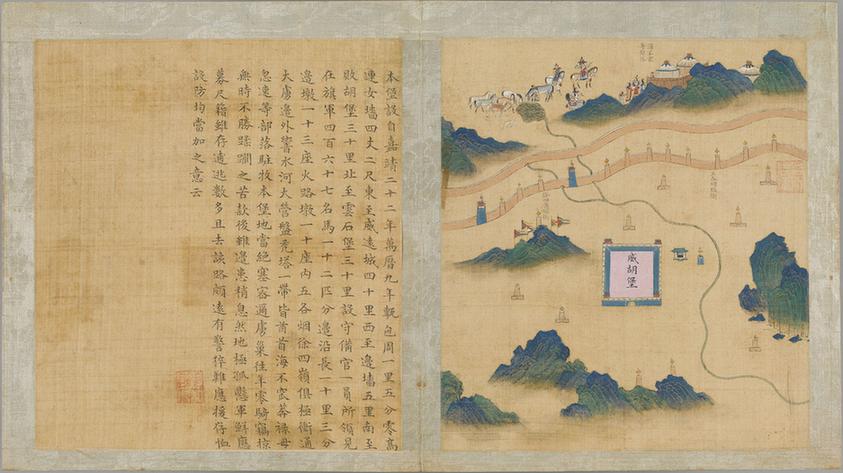 本堡設自嘉靖二十二年萬曆九年甎包周一里五分零高
連女墻四丈二尺東至威遠城四十里西至邊墻五里南至
敗胡堡三十里北至雲石堡三十里設守備官一員所領見
在旗軍四百六十七名馬一十二匹分邊沿長一十里三分
邊墩一十三座火路墩一十座內五各烟徐四嶺俱極衝通
大虜邊外響水河大營盤兎塔一帶皆酋首海不害莽祿毋
忽速等部落駐牧本堡地當絕塞密邇虜巢往年零騎竊掠
無時不勝蹂躪之苦款後雖邊患稍息然地極孤懸軍鮮應
募尺籍雖存逋逃數多且去該路頗遠有警猝難應援存恤
設防均當加之意云
威胡堡